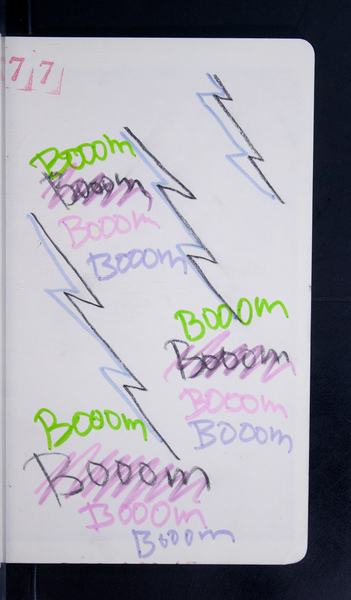 77
Booom
Booom
Booom
Booom
Booom
Booom
Booom
Booom
Booom
Booom
Booom
Booom